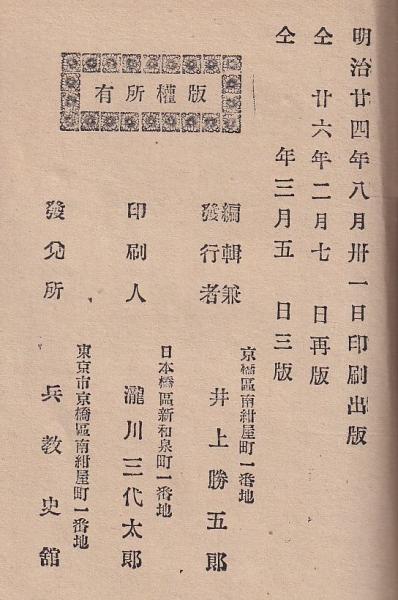 明治廿四年八月卅一日印刷出版
仝 廿六年二月七 日再版
仝 年三月五 日三版
版權所有
編輯兼
發行者
京橋區南紺屋町一番地
井上勝五郎
印刷人
日本橋區新和泉町一番地
瀧川三代太郎
發兌所
東京市京橋區南紺屋町一番地
兵教史舘